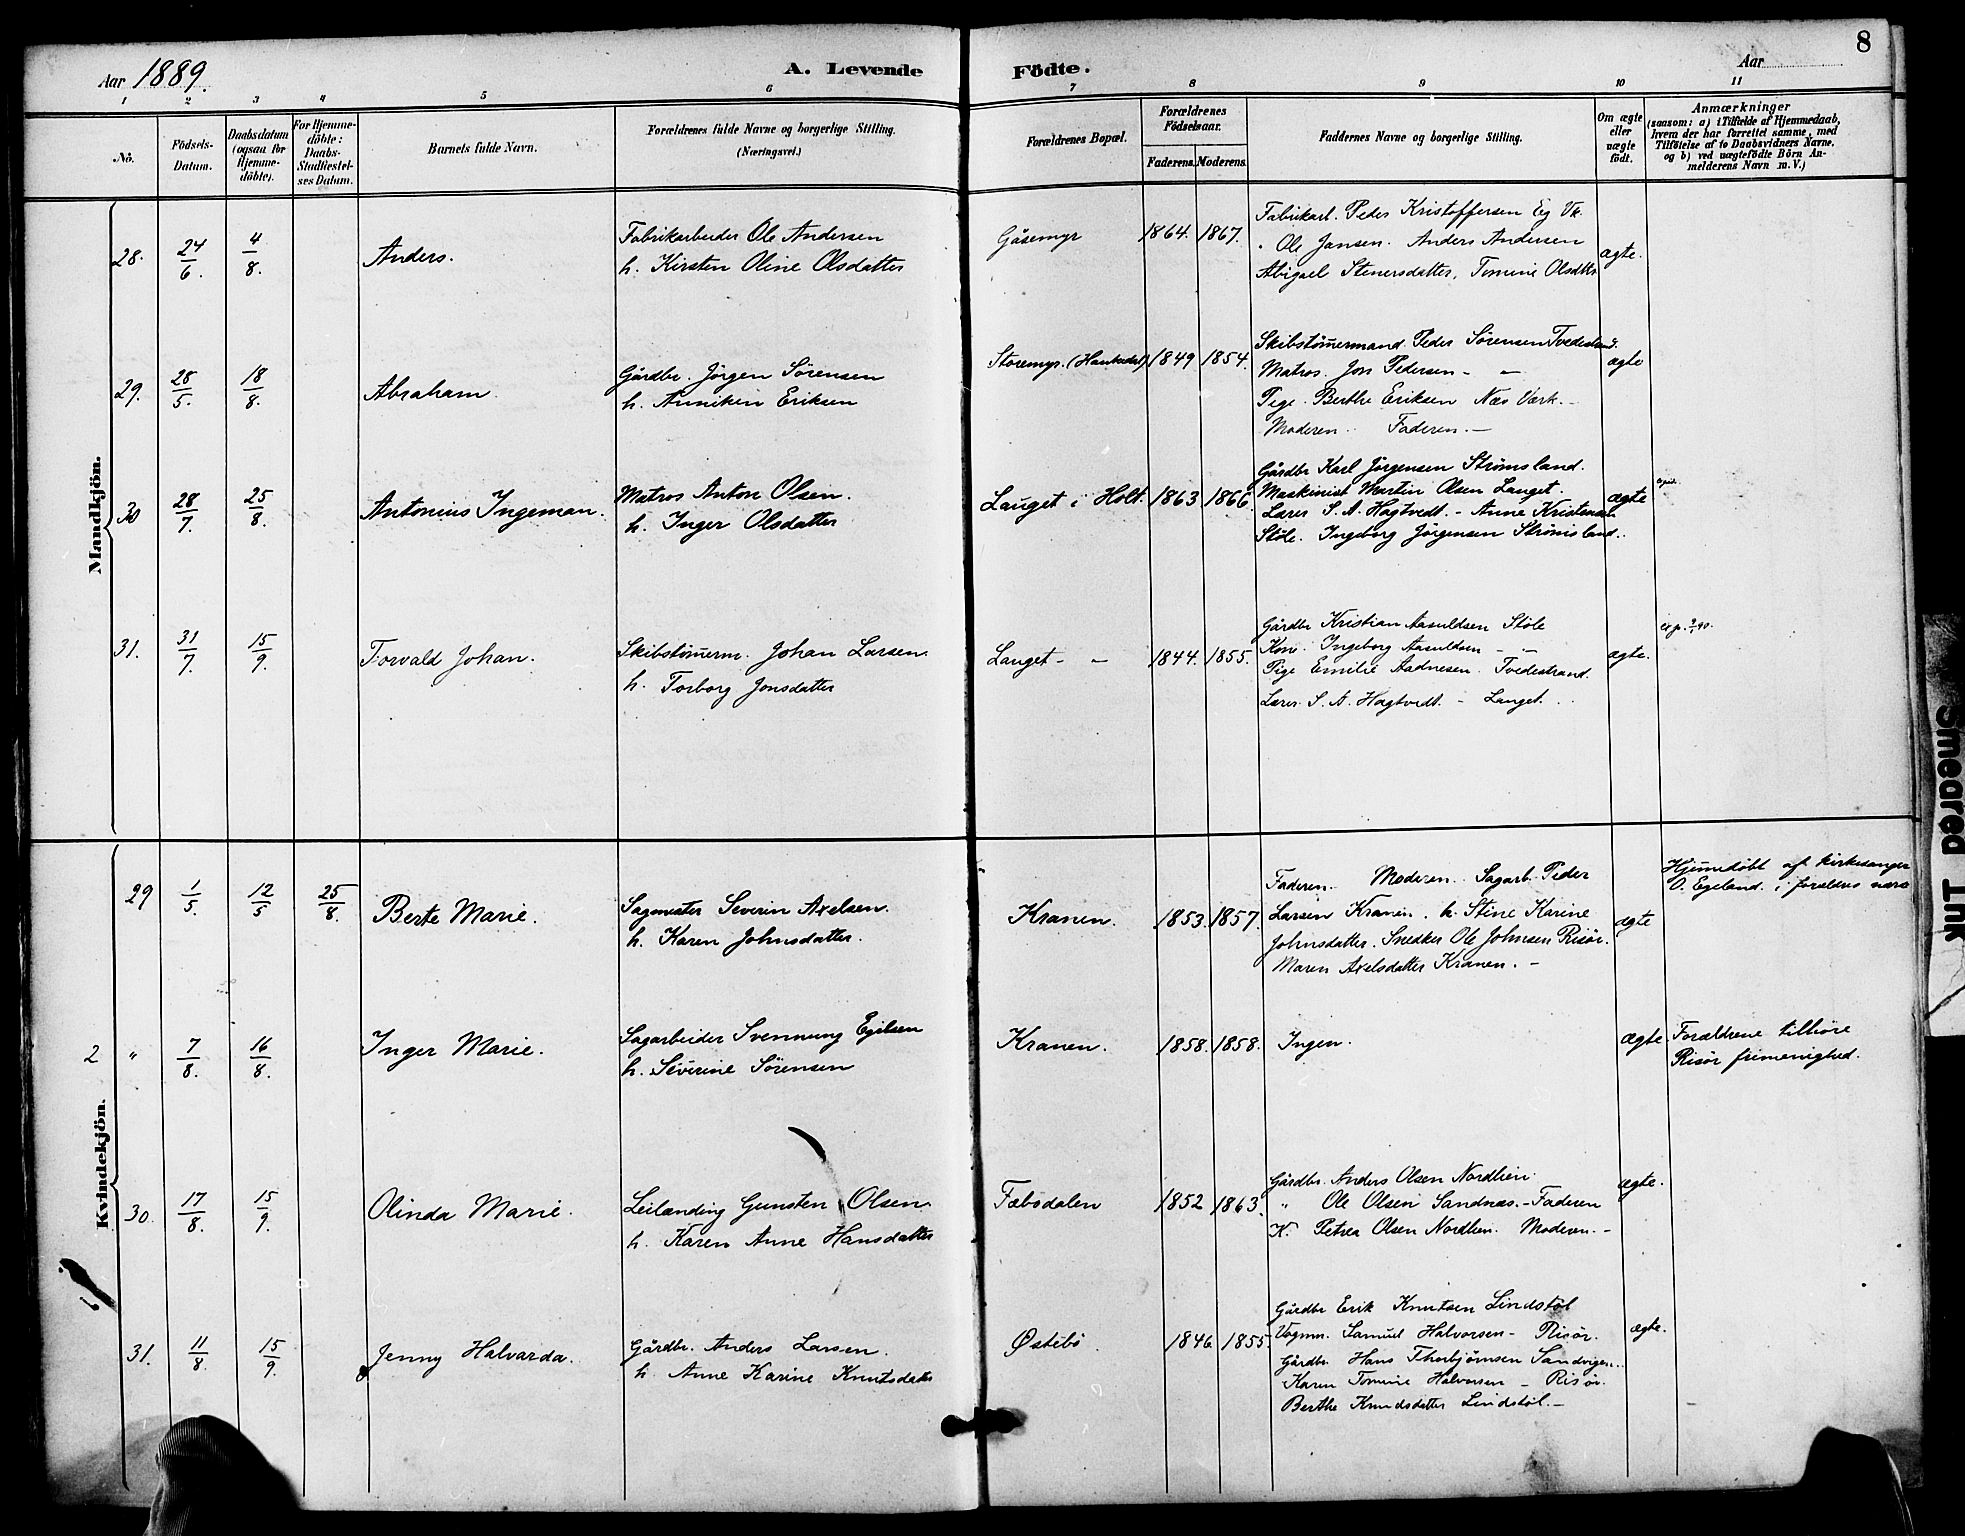 8
Aar 1889.
A. Levende Födte.
Aar
1 2 3 4 5 6 7 8 9 10 11
No.
Födsels-Datum.
Daabsdatum (ogsaa for Hjemme-döbte).
For Hjemme-döbte: Daabs-Stadfæstel-ses Datum.
Barnets fulde Navn.
Forældrenes fulde Navne og borgerlige Stilling.
(Næringsvei.)
Forældrenes Bopæl.
Forældrenes Födselsaar.
Faderens. Moderens.
Faddernes Navne og borgerlige Stilling.
Om ægte eller uægte födt.
Anmærkninger
(saasom: a) i Tilfælde af Hjemmedaab,
hvem der har forrettet samme, med
Tilföielse af to Daabsvidners Navne,
og b) ved uægtefödte Börn An-
melderens Navn m. V.)
Mandkjön.
28. 24/6. 4/8. Anders.
Fabrikarbeider Ole Andersen
h. Kirsten Oline Olsdatter
Gåsemyr 1864. 1867.
Fabrikarb. Peder Kristoffersen Eg Vk.
" Ole Jansen. Anders Andersen
Abigael Stenersdatter, Tomine Olsdtr
ægte.
29. 28/5. 18/8. Abraham.
Gårdbr. Jörgen Sörensen
h. Anniken Eriksen
Storemyr. (Hankedal) 1849 1854.
Skibstömermand Peder Sörensen Tvedestrand.
Matros. Jon Pedersen - "
Pige. Berthe Eriksen Næs Værk.
Moderen. Faderen. -
ægte
30 28/7. 25/8. Antonius Ingeman.
Matros Anton Olsen.
h. Inger Olsdatter
Langet i Holt. 1863 1866.
Gårdbr Karl Jörgensen Strömsland.
Maskinist Martin Olsen Langet.
Lærer S. A. Hagtvedt. - Anne Kristensen
Stöle. Ingeborg Jörgensen Strömsland.
ægte
31. 31/7. 15/9. Torvald Johan.
Skibstömerm. Johan Larsen.
h. Torborg Jonsdatter
Langet - " 1844. 1855.
Gårdbr Kristian Aasuldsen Stöle
Kone. Ingeborg Aasuldsen - "
Pige Emilie Aadnesen. Tvedestrand.
Lærer S. A. Hagtvedt. - Langet.
ægte.
Kvindekjön.
29 1/5. 12/5 25/8. Berte Marie.
Sagmester Severin Axelsen.
h. Karen Johnsdatter.
Kranen. 1853. 1857.
Faderen. Moderen. Sagarb. Peder
Larsen Kranen. h. Stine Karine
Johnsdatter. Snedker Ole Johnsen Risör.
Maren Axelsdatter Kranen. -
ægte
Hjemedöbt af kirkesanger
O. Egeland. i foreldres nærv
2 " 7/8. 16/8. Inger Marie.
Sagarbeider Svennung Egilsen
h. Severine Sörensen
Kranen. 1858. 1858. Ingen.
ægte
Forældrene tilhöre
Risör frimenighed.
30. 17/8. 15/9. Olinda Marie.
Leilænding Gunsten Olsen.
h. Karen Anne Hansdatter
Fæbodalen 1852 1863.
Gårdbr. Anders Olsen Nordlien
" Ole Olsen Sandnæs. - Faderen
K. Petrea Olsen Nordlien. Moderen. -
ægte.
31. 11/8. 15/9. Jenny Halvarda.
Gårdbr. Anders Larsen.
h. Anne Karine Knutsdatter
Østebö 1846 1855.
Gårdbr Erik Knutsen Lindstöl
Vognm. Samuel Halvorsen - Risör.
Gårdbr. Hans Thorbjörnsen Sandvigen.
Karen Tomine Halvorsen - Risör.
Berthe Knudsdatter Lindstöl. -
ægte.
Smeared Ink